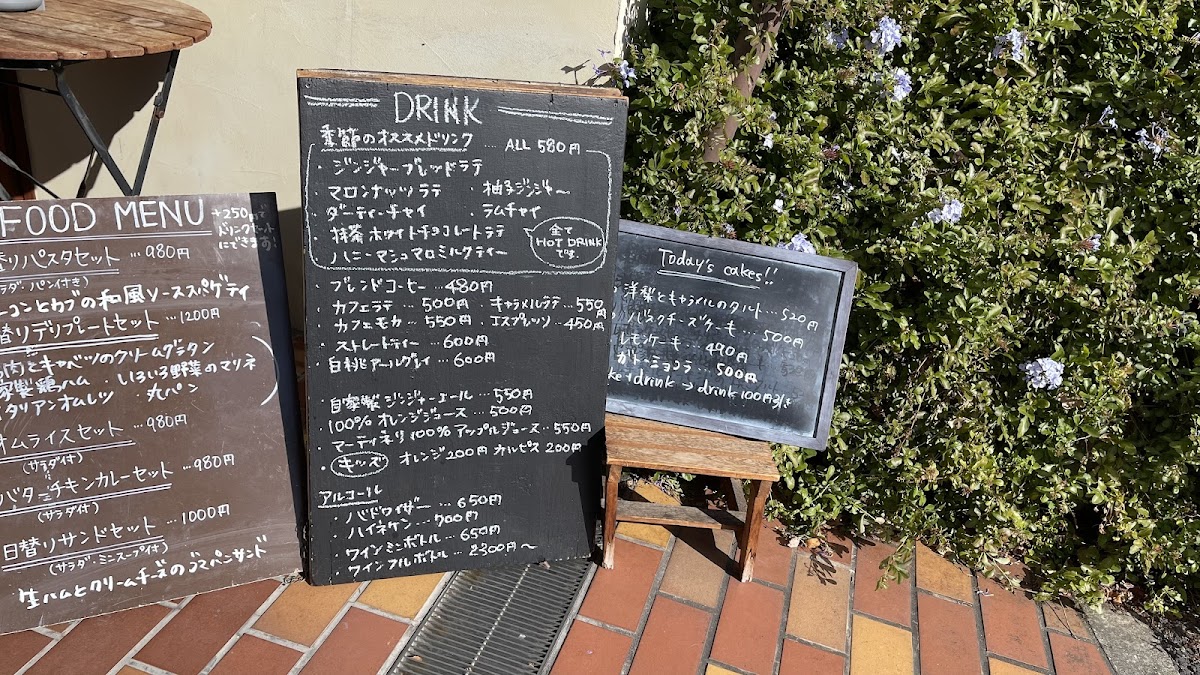 FOOD MENU
+250円で
ドリンクセット
にできます!
替りパスタセット …980円
(サラダ・パン付き)
ーコンとカブの和風ソーススパゲティ
替りデリプレートセット …1200円
肉とキャベツのクリームグラタン
家製鶏ハム ・いろいろ野菜のマリネ
タリアンオムレツ ・丸パン
オムライスセット …980円
(サラダ付)
バターチキンカレーセット …980円
(サラダ付)
日替りサンドセット …1000円
(サラダ・ミニスープ付)
生ハムとクリームチーズのゴマパンサンド
DRINK
季節のオススメドリンク … ALL 580円
・ジンジャーブレッドラテ
・マロンナッツラテ ・柚子ジンジャー
・ダーティーチャイ ・ラムチャイ
・抹茶ホワイトチョコレートラテ
・ハニーマシュマロミルクティー
全て
HOT DRINK
です。
・ブレンドコーヒー …480円
・カフェラテ … 500円 ・キャラメルラテ … 550円
・カフェモカ … 550円 ・エスプレッソ … 450円
・ストレートティー … 600円
・白桃アールグレイ … 600円
・自家製ジンジャーエール … 550円
・100% オレンジジュース … 500円
・マーティネリ 100% アップルジュース … 550円
・キッズ オレンジ200円 カルピス 200円
アルコール
・バドワイザー … 650円
・ハイネケン … 700円
・ワインミニボトル … 650円
・ワインフルボトル … 2300円〜
Today's cakes!!
洋梨とキャラメルのタルト … 520円
バスクチーズケーキ … 500円
レモンケーキ … 490円
ガトーショコラ … 500円
ke+drink → drink 100円引き